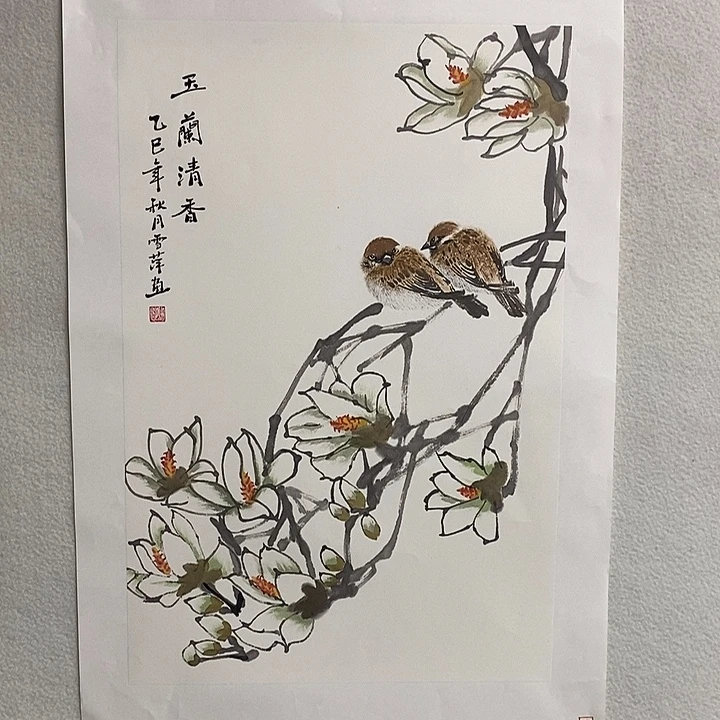 玉蘭清香
乙巳年秋月雪萍畫